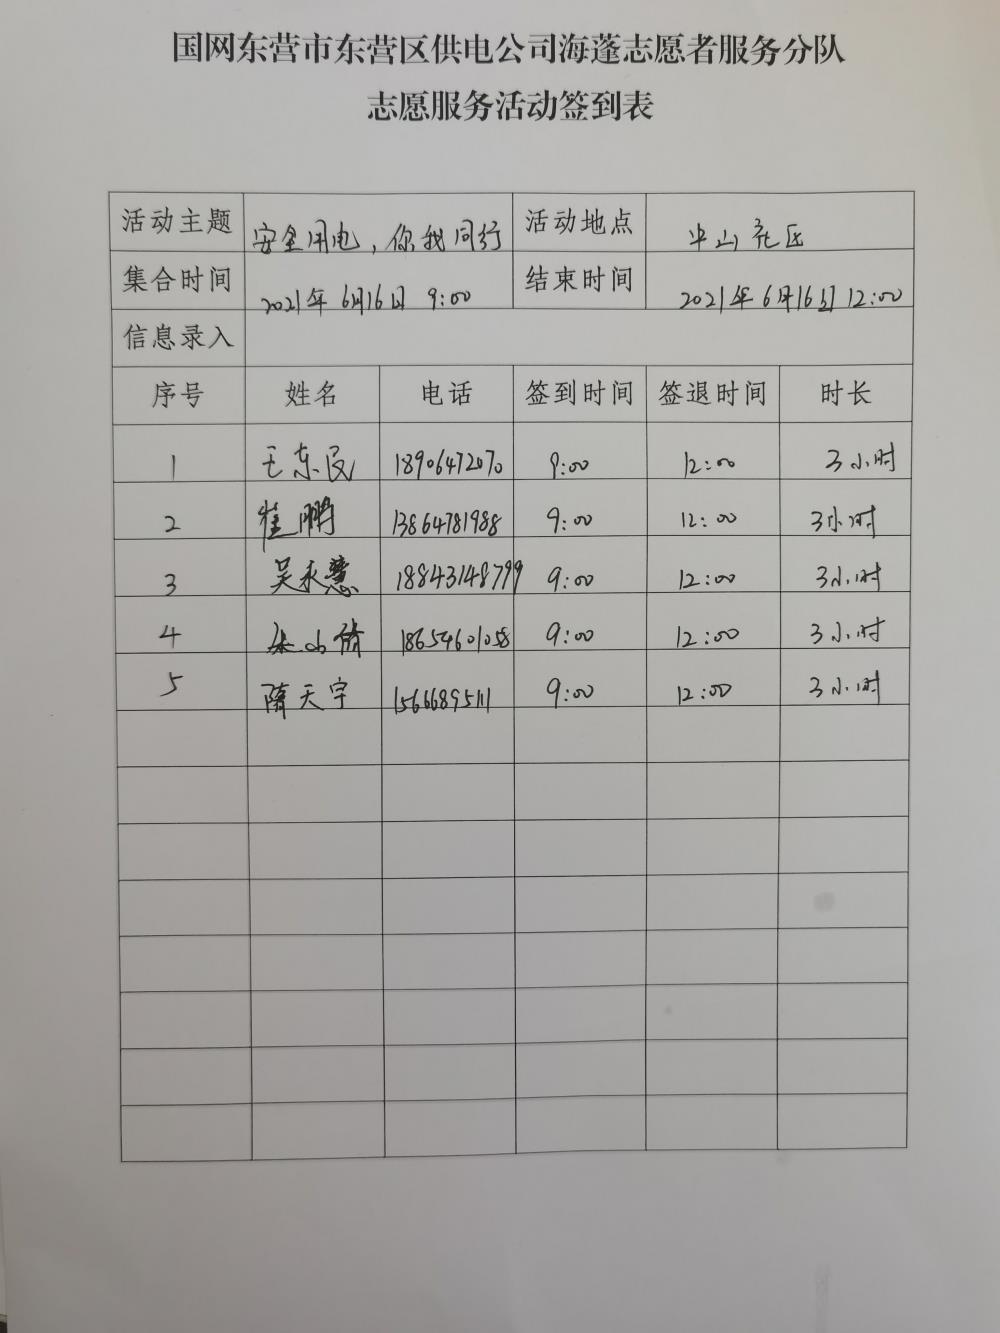 国网东营市东营区供电公司海蓬志愿者服务分队
志愿服务活动签到表
活动主题 安全用电，你我同行 活动地点 中山社区
集合时间 2021年6月16日 9:00 结束时间 2021年6月16日12:00
信息录入
序号 姓名 电话 签到时间 签退时间 时长
1 王东民 18906472070 9:00 12:00 3小时
2 崔鹏 13864781988 9:00 12:00 3小时
3 吴永慧 18843148799 9:00 12:00 3小时
4 小倩 18654601058 9:00 12:00 3小时
5 隋天宇 15666895111 9:00 12:00 3小时